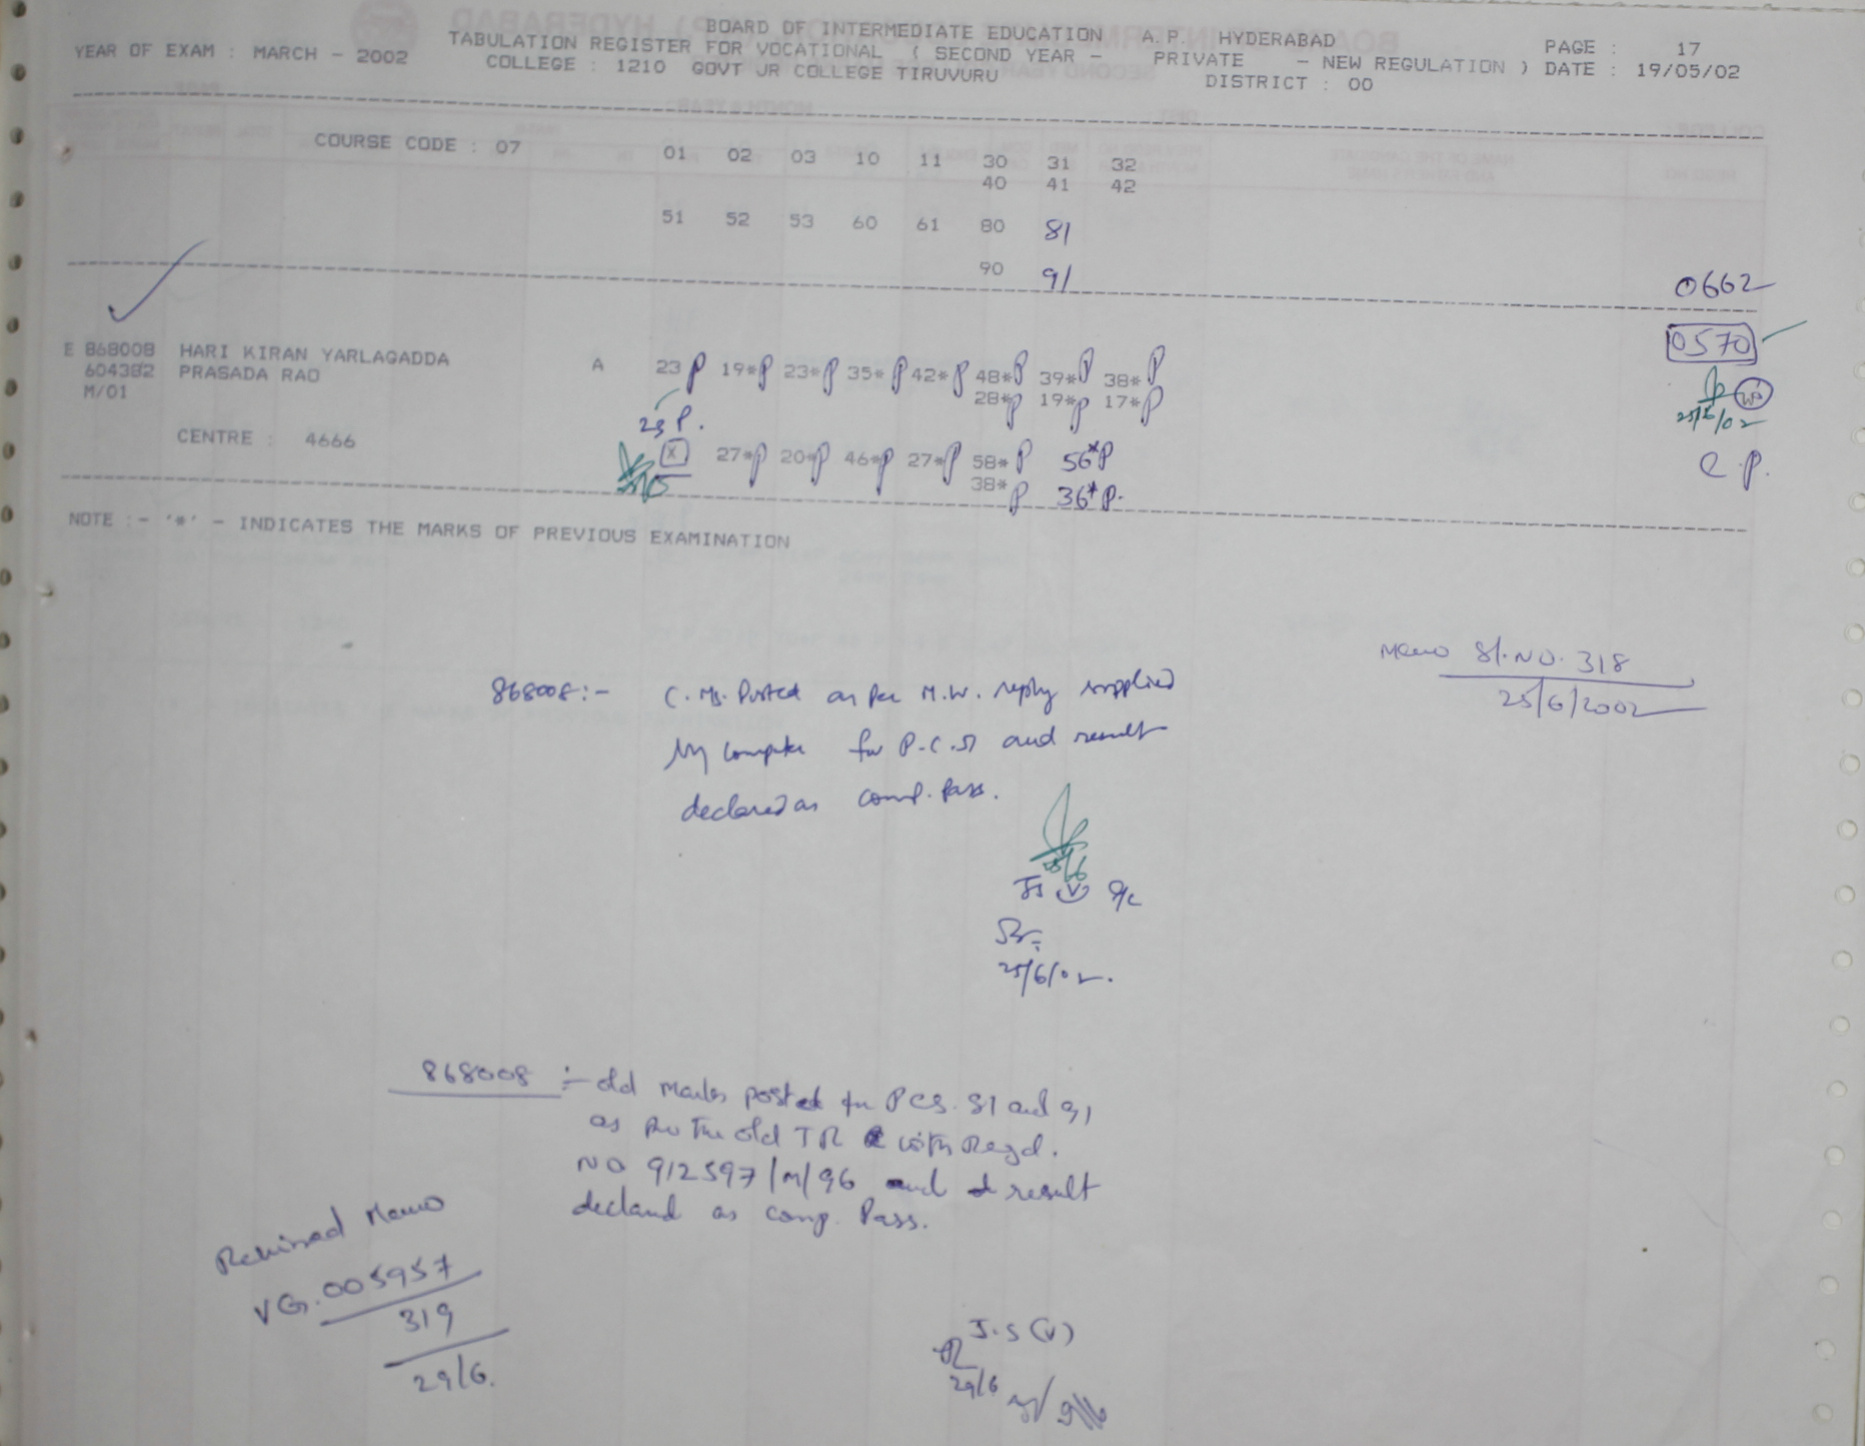 BOARD OF INTERMEDIATE EDUCATION A.P. HYDERABAD
YEAR OF EXAM : MARCH - 2002 TABULATION REGISTER FOR VOCATIONAL ( SECOND YEAR - PRIVATE - NEW REGULATION ) PAGE : 17
COLLEGE : 1210 GOVT JR COLLEGE TIRUVURU DISTRICT : 00 DATE : 19/05/02
COURSE CODE : 07 01 02 03 10 11 30 31 32
40 41 42
51 52 53 60 61 80 81
90 91
0662
0570
E 868008 HARI KIRAN YARLAGADDA A 23 P 19*P 23*P 35*P 42*P 48*P 39*P 38*P
604382 PRASADA RAO 28*P 19*P 17*P
M/01
23 P.
25/6/02
CENTRE : 4666 X 27*P 20*P 46*P 27*P 58*P 56*P
38*P 36*P.
C.P.
NOTE :- '*' - INDICATES THE MARKS OF PREVIOUS EXAMINATION
Memo Sl.NO. 318
25/6/2002
868008:- C. Ms. Posted as per M.W. reply supplied
by computer for P.C.51 and result
declared as comp. Pass.
25/6
JS (V) I/c
25/6/02.
868008 :- old marks posted for PCS. 81 and 91
as per the old TR with Regd.
NO 912597/M/96 and result
declared as comp. Pass.
Revised Memo
VG.005957
319
29/6.
J.S (V)
29/6